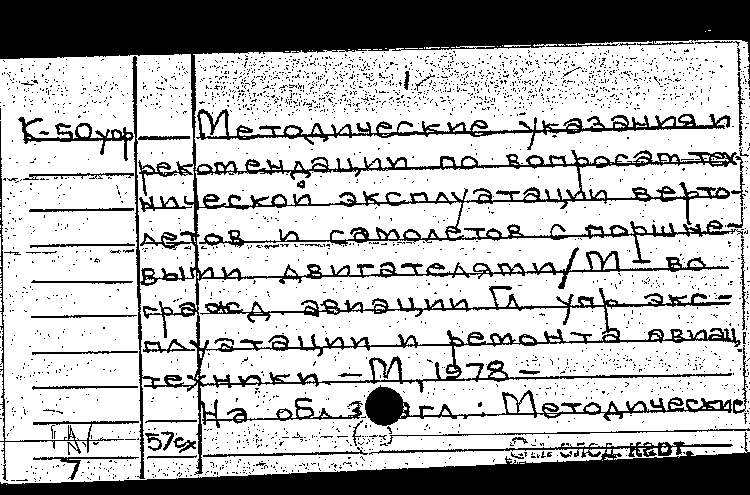 К-50 упр Методические указания и
рекомендации по вопросам тех-
нической эксплуатации верто-
летов и самолетов с поршне-
выми двигателями / М-во
гражд авиации Гл упр экс-
плуатации и ремонта авиац
техники. – М, 1978 –
На обл загл.: Методические
57сх
7
См. след. карт.